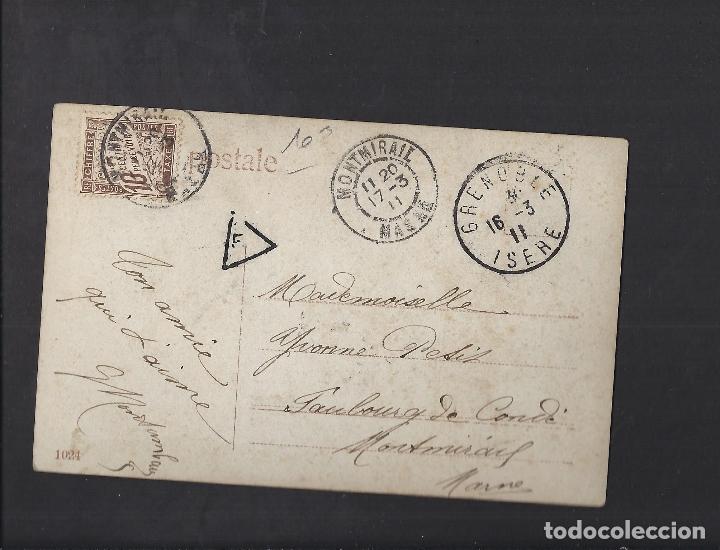 MONTMIRAIL
CHIFFRE
TAXE
10
Postale
MONTMIRAIL
11 20
17 -3
11
MARNE
GRENOBLE
16 -3
11
ISERE
T
Ton amie
qui t'aime
Mademoiselle
Yvonne Petit
Faubourg de Condé
Montmirail
Marne
1024
todocoleccion.net